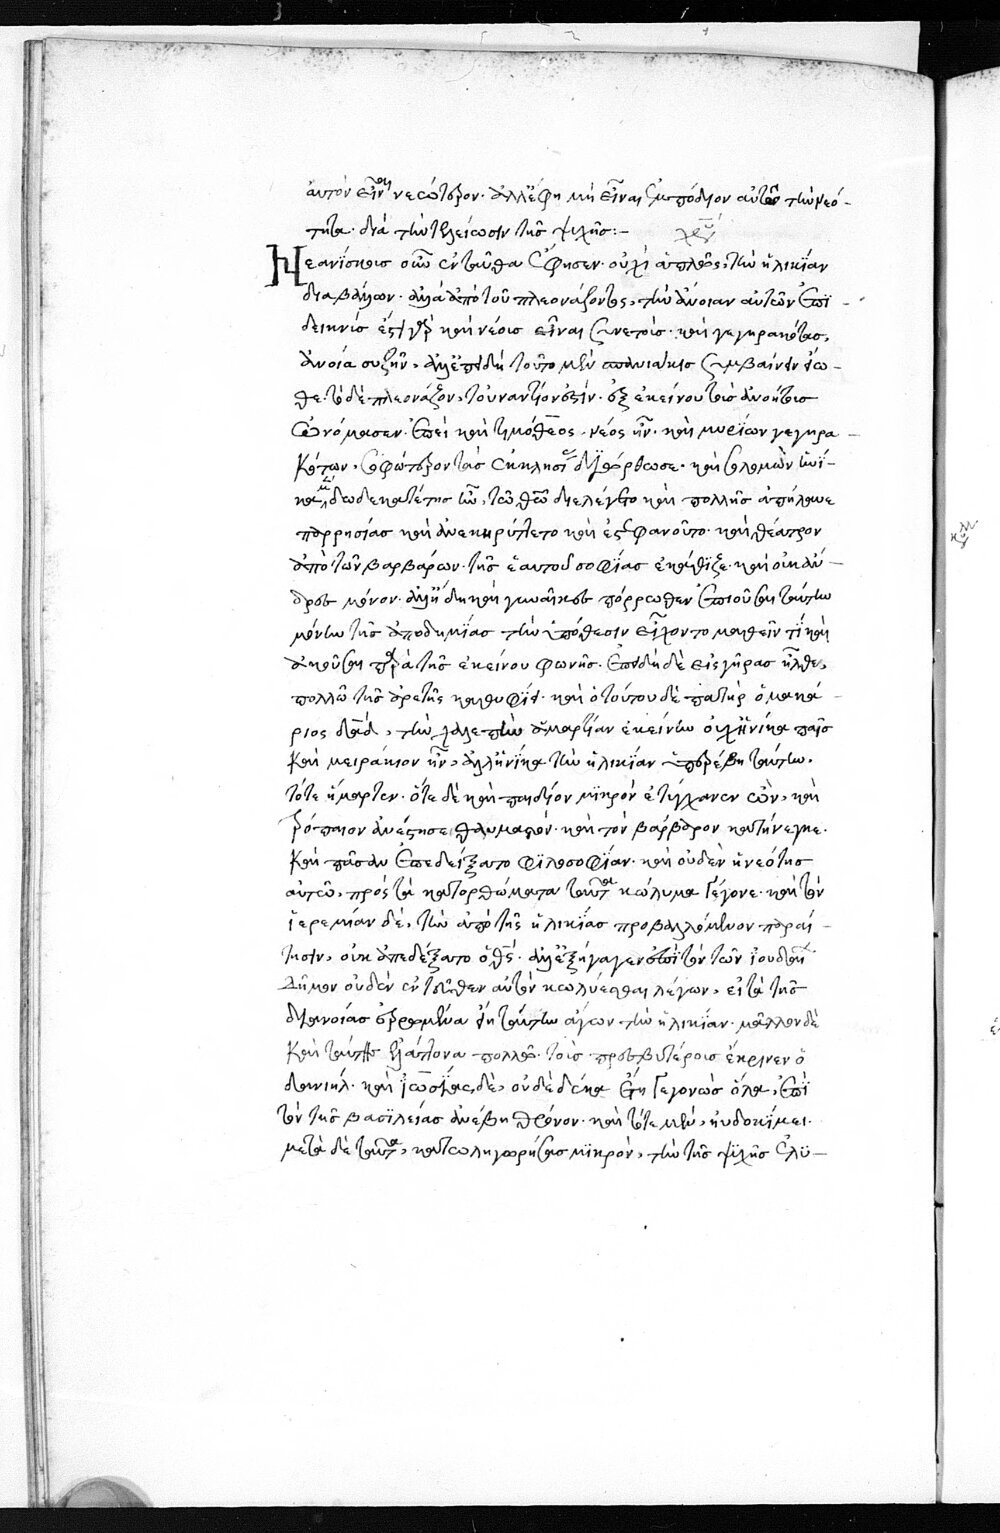 αὐτὸν εἶναι νεώτερον· ἀλλ' ἔφη μὴ εἶναι ἐμπόδιον αὐτῶ τὴν νεό-
τητα· διὰ τὴν τελείωσιν τῆς ψυχῆς:-
Νεανίσκοις οὖν ἐνταῦθα ἔφησεν· οὐχὶ ἁπλῶς, τὴν ἡλικίαν
διαβάλλων· ἀλλὰ ἀπὸ τοῦ πλεονάζοντος, τὴν ἄνοιαν αὐτῶν ἐπι-
δεικνύς ἐστι γὰρ καὶ νέοις εἶναι συνετοῖς· καὶ γεγηρακότας,
ἀνοία συζῆν, ἀλλ' ἐπειδὴ τοῦτο μὲν σπανιάκις συμβαίνειν εἴω-
θε· τὸ δὲ πλεονάζον, τοὐναντίον ἐστὶν· ἐξ ἐκείνου τοὺς ἀνοήτους
ὠνόμασεν· ἐπεὶ καὶ τιμόθεος, νέος ἦν· καὶ μυρίων γεγηρα-
κότων, σοφώτερον τὰς ἐκκλησίας διώρθωσε· καὶ σολομὼν ἡνί-
κα δωδεκαέτης ἦν, τῶ θεῶ διελέγετο καὶ πολλῆς ἀπήλαυε
παρρησίας καὶ ἀνεκηρύττετο καὶ ἐστεφανοῦτο· καὶ θέατρον
ἀπὸ τῶν βαρβάρων· τῆς ἑαυτοῦ σοφίας ἐκάθιζε· καὶ οὐκ ἄν-
δρες μόνον· ἀλλ' ἤδη καὶ γυναῖκες πόρρωθεν ταύτην
μόνην τῆς ἀποδημίας τὴν ὑπόθεσιν εἶχον τὸ μαθεῖν τί καὶ
ἀκοῦσαι παρὰ τῆς ἐκείνου φωνῆς· ἐπειδὴ δὲ εἰς γῆρας ἦλθε,
πολλῶ τῆς ἀρετῆς καθυφῆκε· καὶ ὁ τούτου δὲ πατὴρ ὁ μακά-
ριος δαδ, τὴν χαλεπὴν ἁμαρτίαν ἐκείνην οὐχ ἡνίκα παῖς
καὶ μειράκιον ἦν, ἀλλ' ἡνίκα τὴν ἡλικίαν ὑπερέβη ταύτην·
τότε ἥμαρτεν· ὅτε δὲ καὶ παιδίον μικρὸν ἐτύγχανεν ὢν, καὶ
τρόπαιον ἀνέστησε θαυμαστόν· καὶ τὸν βάρβαρον κατήνεγκε·
καὶ πᾶσαν ἐπεδείξατο φιλοσοφίαν· καὶ οὐδὲν ἡ νεότης
αὐτοῦ, πρὸς τὰ κατορθώματα ταῦτα κώλυμα γέγονε· καὶ τὸν
ἱερεμίαν δὲ, τὴν ἀπὸ τῆς ἡλικίας προβαλλόμενον παραί-
τησιν, οὐκ ἀπεδέξατο ὁ θς· ἀλλ' ἐξήγαγεν ἐπὶ τὸν τῶν ἰουδαίων
δῆμον οὐδὲν ἐντεῦθεν αὐτὸν κωλύεσθαι λέγων, εἰ τὰ τῆς
διανοίας ταύτην ἄγων τὴν ἡλικίαν· μᾶλλον δὲ
καὶ ταύτης ἐλάττονα πολλῶ· τοὺς πρεσβυτέρους ἔκρινεν ὁ
δανιήλ· καὶ ἰωσίας δὲ, οὐδὲ δέκα ἔτη γεγονὼς ὅλα, ἐπὶ
τὸν τῆς βασιλείας ἀνέβη θρόνον· καὶ τότε μὲν, ηὐδοκίμει·
μετὰ δὲ ταῦτα, κατολιγωρήσας μικρὸν, τὴν τῆς ψυχῆς ἐλυ-